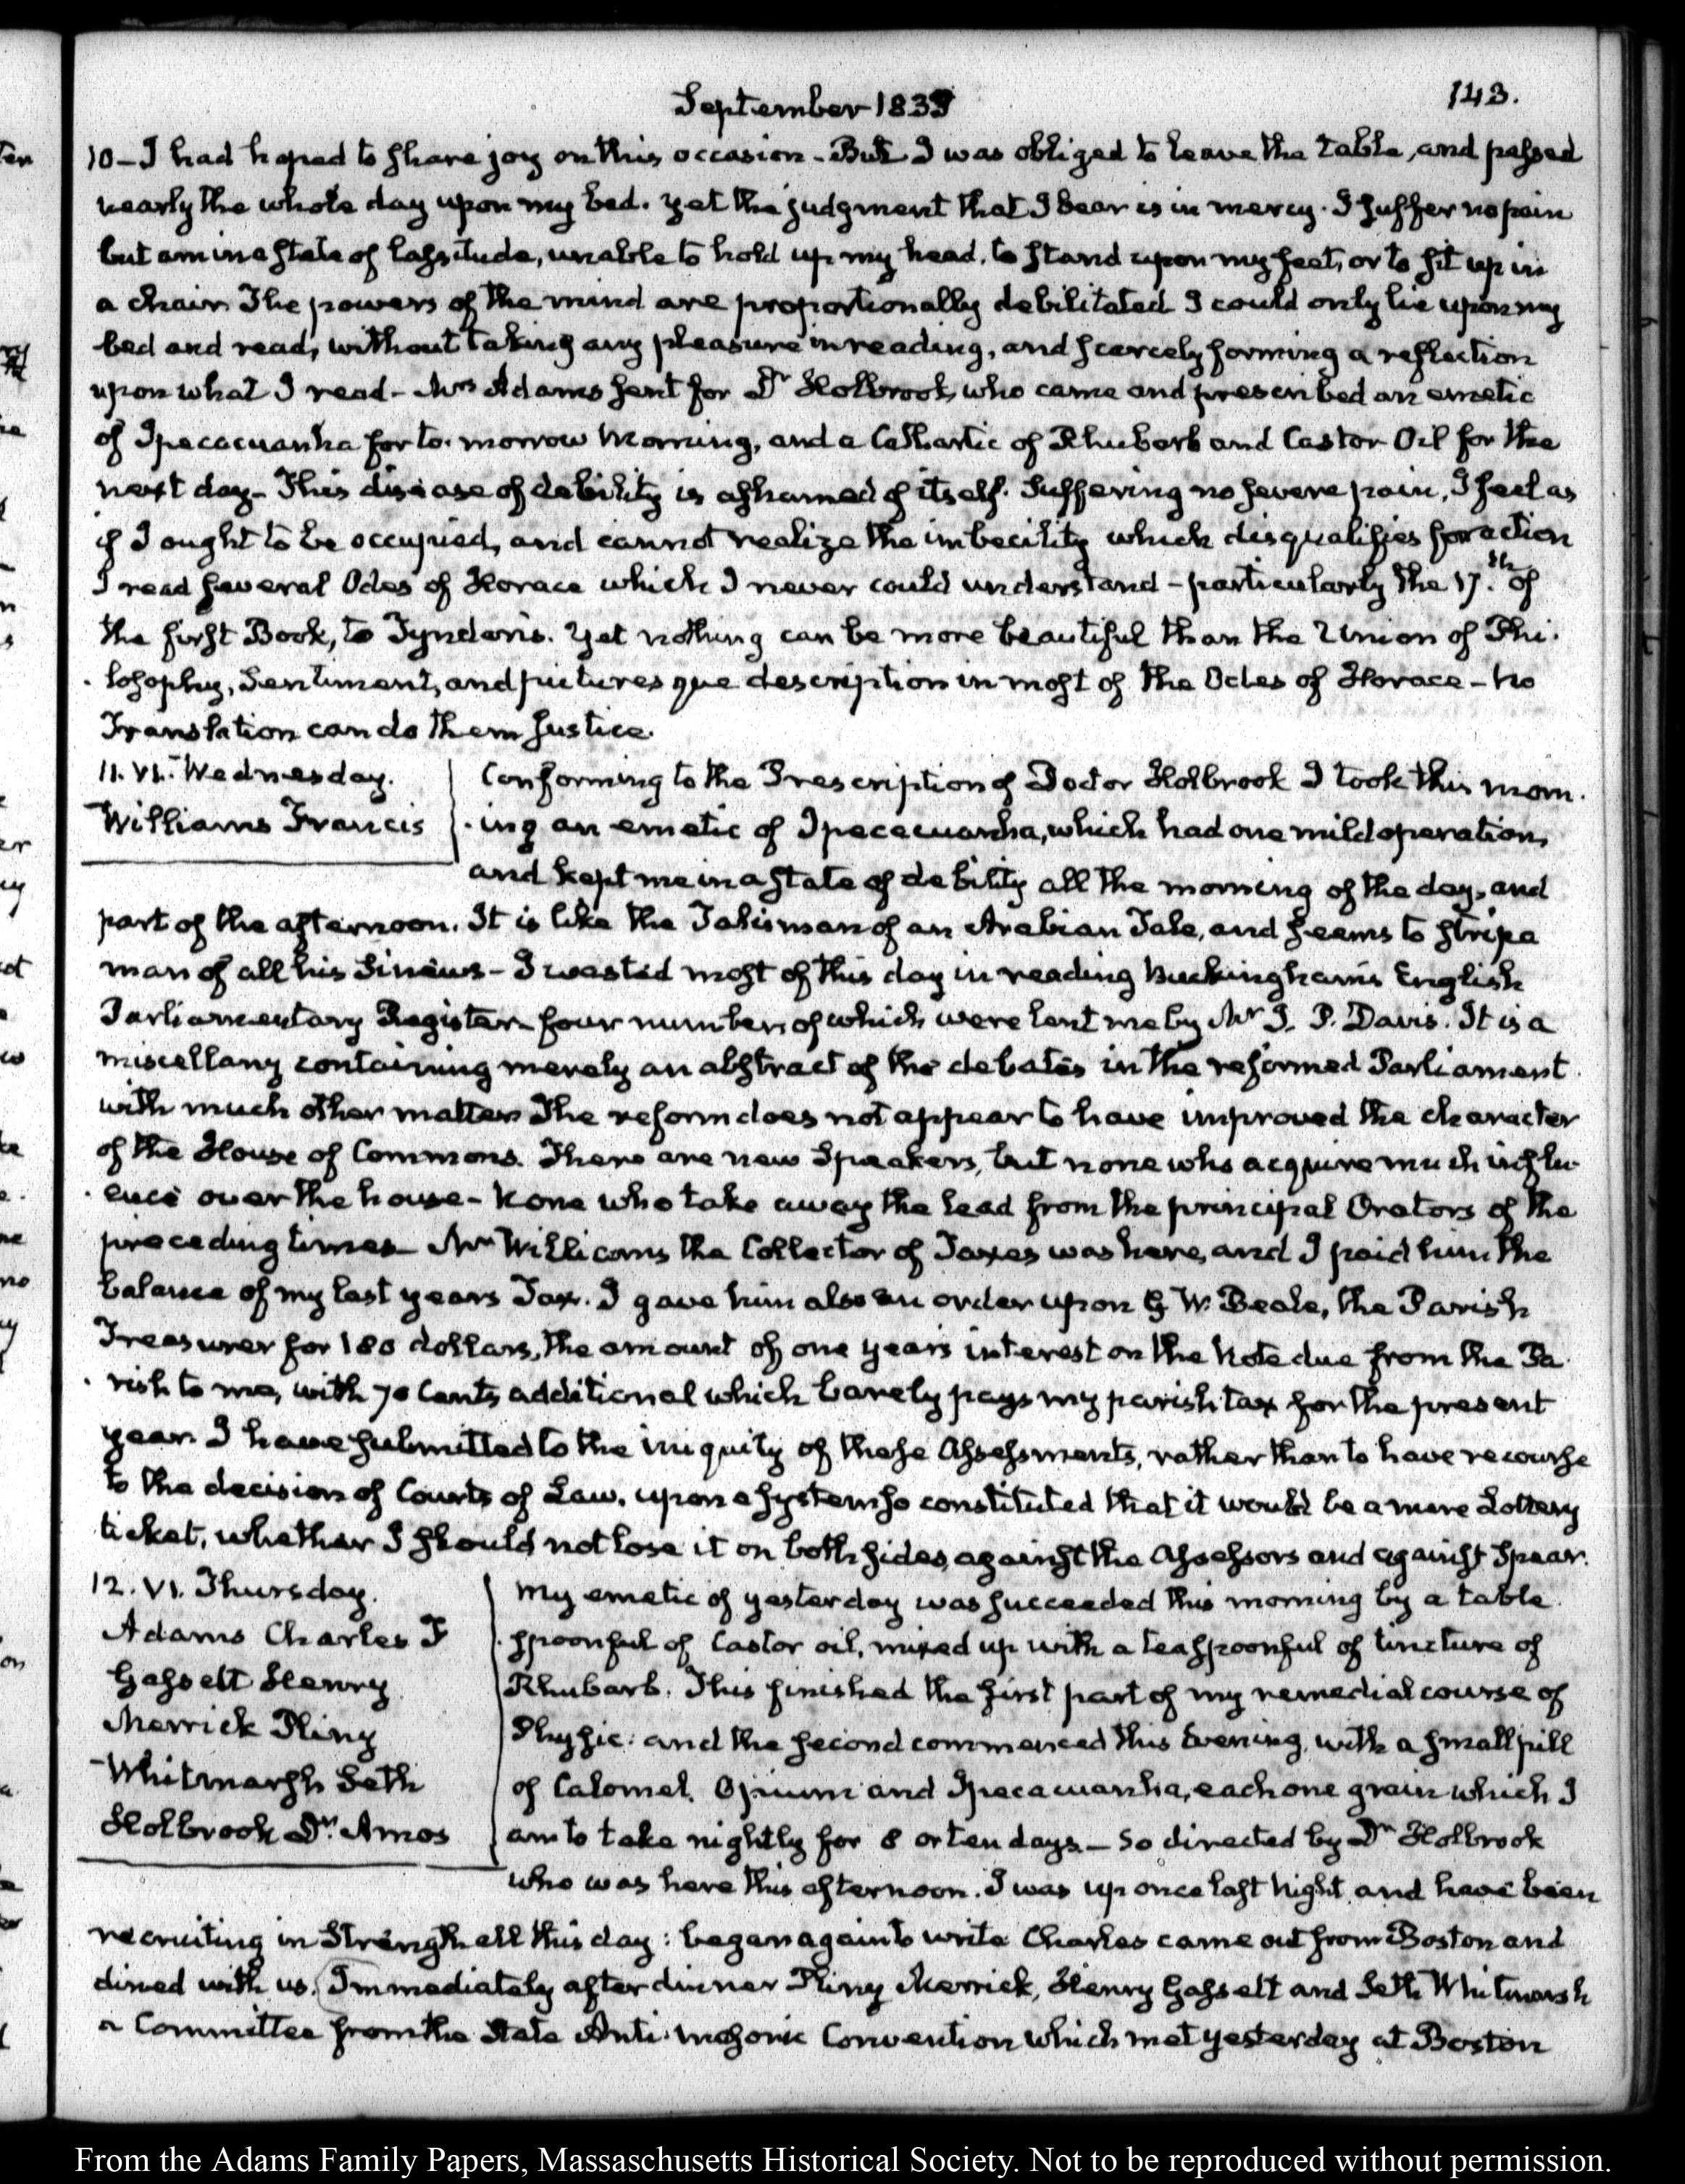 September 1833
143.
10 - I had hoped to share joy on this occasion - But I was obliged to leave the table, and passed
nearly the whole day upon my bed. yet the judgment that I bear is in mercy. I suffer no pain
but am in a state of lassitude, unable to hold up my head, to stand upon my feet, or to sit up in
a chair. The powers of the mind are proportionally debilitated I could only lie upon my
bed and read, without taking any pleasure in reading, and scarcely forming a reflection
upon what I read - Mrs Adams sent for Dr Holbrook, who came and prescribed an emetic
of Ipecacuanha for to-morrow Morning, and a Cathartic of Rhubarb and Castor Oil for the
next day - This disease of debility is ashamed of itself. Suffering no severe pain, I feel as
if I ought to be occupied, and cannot realize the imbecility which disqualifies for action
I read several Odes of Horace which I never could understand - particularly the 17.th of
the first Book, to Tyndaris. Yet nothing can be more beautiful than the Union of Phi-
-losophy, Sentiment, and picturesque description in most of the Odes of Horace - No
Translation can do them Justice.
11. VI. Wednesday.
Williams Francis
Conforming to the Prescription of Doctor Holbrook I took this morn-
-ing an emetic of Ipecacuanha, which had one mild operation,
and kept me in a state of debility all the morning of the day, and
part of the afternoon. It is like the Talisman of an Arabian Tale, and seems to strip a
man of all his Sinews - I wasted most of this day in reading Buckingham's English
Parliamentary Register four numbers of which were lent me by Mr I. P. Davis. It is a
miscellany containing merely an abstract of the debates in the reformed Parliament
with much other matter. The reform does not appear to have improved the character
of the House of Commons. There are new Speakers, but none who acquire much influ-
-ence over the house - None who take away the lead from the principal Orators of the
preceding times - Mr Williams the Collector of Taxes was here, and I paid him the
balance of my last years Tax. I gave him also an order upon G W. Beale, the Parish
Treasurer for 180 dollars, the amount of one year's interest on the Note due from the Pa-
-rish to me, with 70 Cents additional which barely pays my parish tax for the present
year. I have submitted to the iniquity of these Assessments, rather than to have recourse
to the decision of Courts of Law, upon a system so constituted that it would be a mere Lottery
ticket, whether I should not lose it on both sides, against the Assessors and against Spear.
12. VI. Thursday.
Adams Charles F
Gassett Henry
Merrick Pliny
Whitmarsh Seth
Holbrook Dr. Amos
My emetic of yesterday was succeeded this morning by a table-
-spoonful of Castor oil, mixed up with a teaspoonful of tincture of
Rhubarb. This finished the first part of my remedial course of
Physic: and the second commenced this Evening, with a small pill
of Calomel, Opium and Ipecacuanha, each one grain which I
am to take nightly for 8 or ten days - So directed by Dr Holbrook
who was here this afternoon. I was up once last Night, and have been
recruiting in Strength all this day: began again to write Charles came out from Boston and
dined with us. Immediately after dinner Pliny Merrick, Henry Gassett and Seth Whitmarsh
a Committee from the State Anti-masonic Convention which met yesterday at Boston
From the Adams Family Papers, Massachusetts Historical Society. Not to be reproduced without permission.